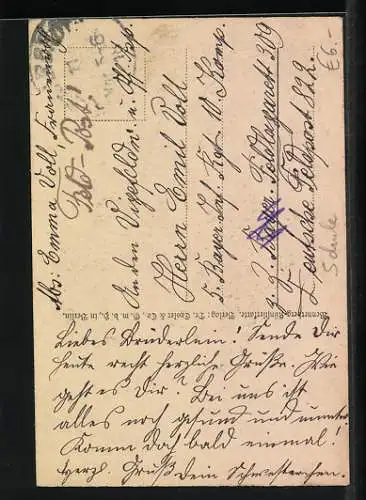 Abs: Emma Voll, Traunstein
Feld-Post!
An den Vizefeldw. u. Off. Asp.
Herrn Emil Voll
5. Bayer. Inf. Rgt. 10. Komp.
z. Z. Bayer. Feldlazarett 309
Deutsche Feldpost 822.
£6.-
Schule
Wennerberg-Künstlerkarte, Verlag Dr. Eysler & Co., G. m. b. H. in Berlin.
Liebes Brüderlein! Sende Dir
heute recht herzliche Grüße. Wie
geht es Dir? Bei uns ist
alles noch gesund und munter.
Komm doch bald einmal!
Herzl. Gruß Dein Schwesterchen.